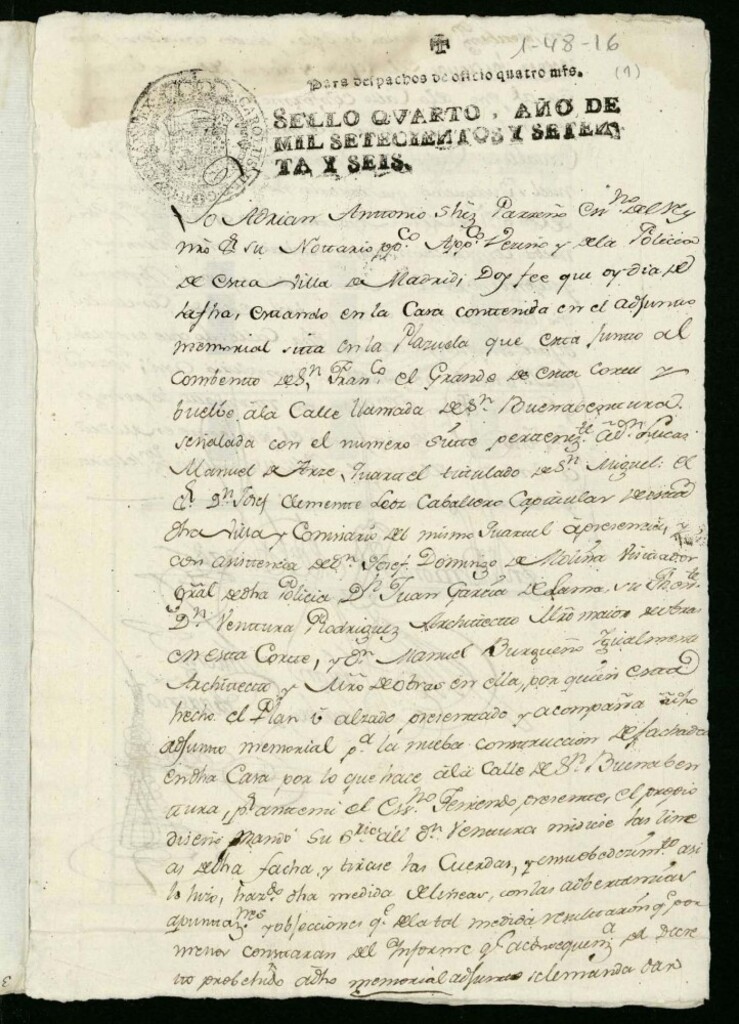 1-48-16
(1)
Para despachos de oficio quatro mrs.
SELLO QVARTO, AÑO DE
MIL SETECIENTOS Y SETEN
TA Y SEIS.
Yo Adrian Antonio Shez Parreño Essno del Rey
nro Sr su Nottario ppco Appco Vecino y de la Policia
de esta villa de Madrid; Doy fee que oy dia de
la fha, estando en la Casa contenida en el adjunto
memorial sitta en la Plazuela que esta junto al
Combento de Sn Franco el Grande de esta Corte y
buelbe â la Calle llamada de Sn Buenabentura
señalada con el numero siete pertenezite â Dn Lucas
Manuel de Arze, Quartel titulado de Sn Miguel: el
Sr Dn Josef Clemente Caballero Capitular de esta
dha villa y Comisario del mismo Quartel â presencia, y
con asistencia de Dn Josef Domingo de Molina Visitador
gral de dha Policia Dn Juan Garcia de Lama, su Thente
Dn Ventura Rodriguez Architecto Mro maior de obras
en esta Corte, y Dn Manuel Burgueño Igualmente
Architecto y Mro de obras en ella, por quien esta
hecho el Plan û alzado, presentado y acompaña â dho
adjunto memorial pa la nueba construccion de fachada
en dha Casa por lo que hace â la Calle de Sn Buenaben
tura, pr ante mi el Essno teniendo presente, el propio
diseño Mandó su Sria al Dn Ventura midiese las line
as de dha facha y tirase las Cuerdas, y en su obedezimto asi
lo hizo, hazdo dha medida de lineas, con las adbertencias
apuntaznes y objecciones qe de la tal medida resultaron qe por
menor constaran del Informe qe â consequenza del Decre
to probehido â dho memorial adjunto se le manda dar